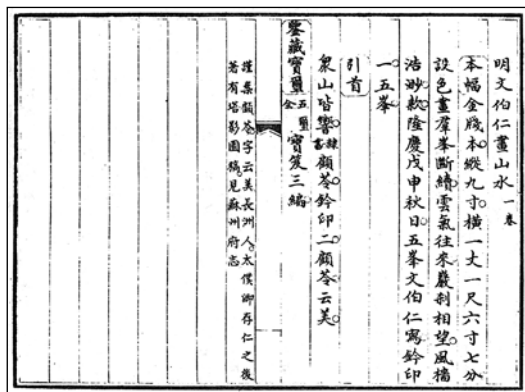 明文伯仁畫山水一卷
本幅金牋本縱九寸橫一丈一尺六寸七分
設色畫羣峯斷續雲氣往來巖刹相望風檣
浩渺款隆慶戊申秋日五峯文伯仁寫鈐印
一五峯
引首
衆山皆響隸書顧苓鈐印二顧苓云美
鑒藏寶璽五璽全寶笈三編
謹案顧苓字云美長洲人太僕卿存仁之後
著有塔影園稿見蘇州府志